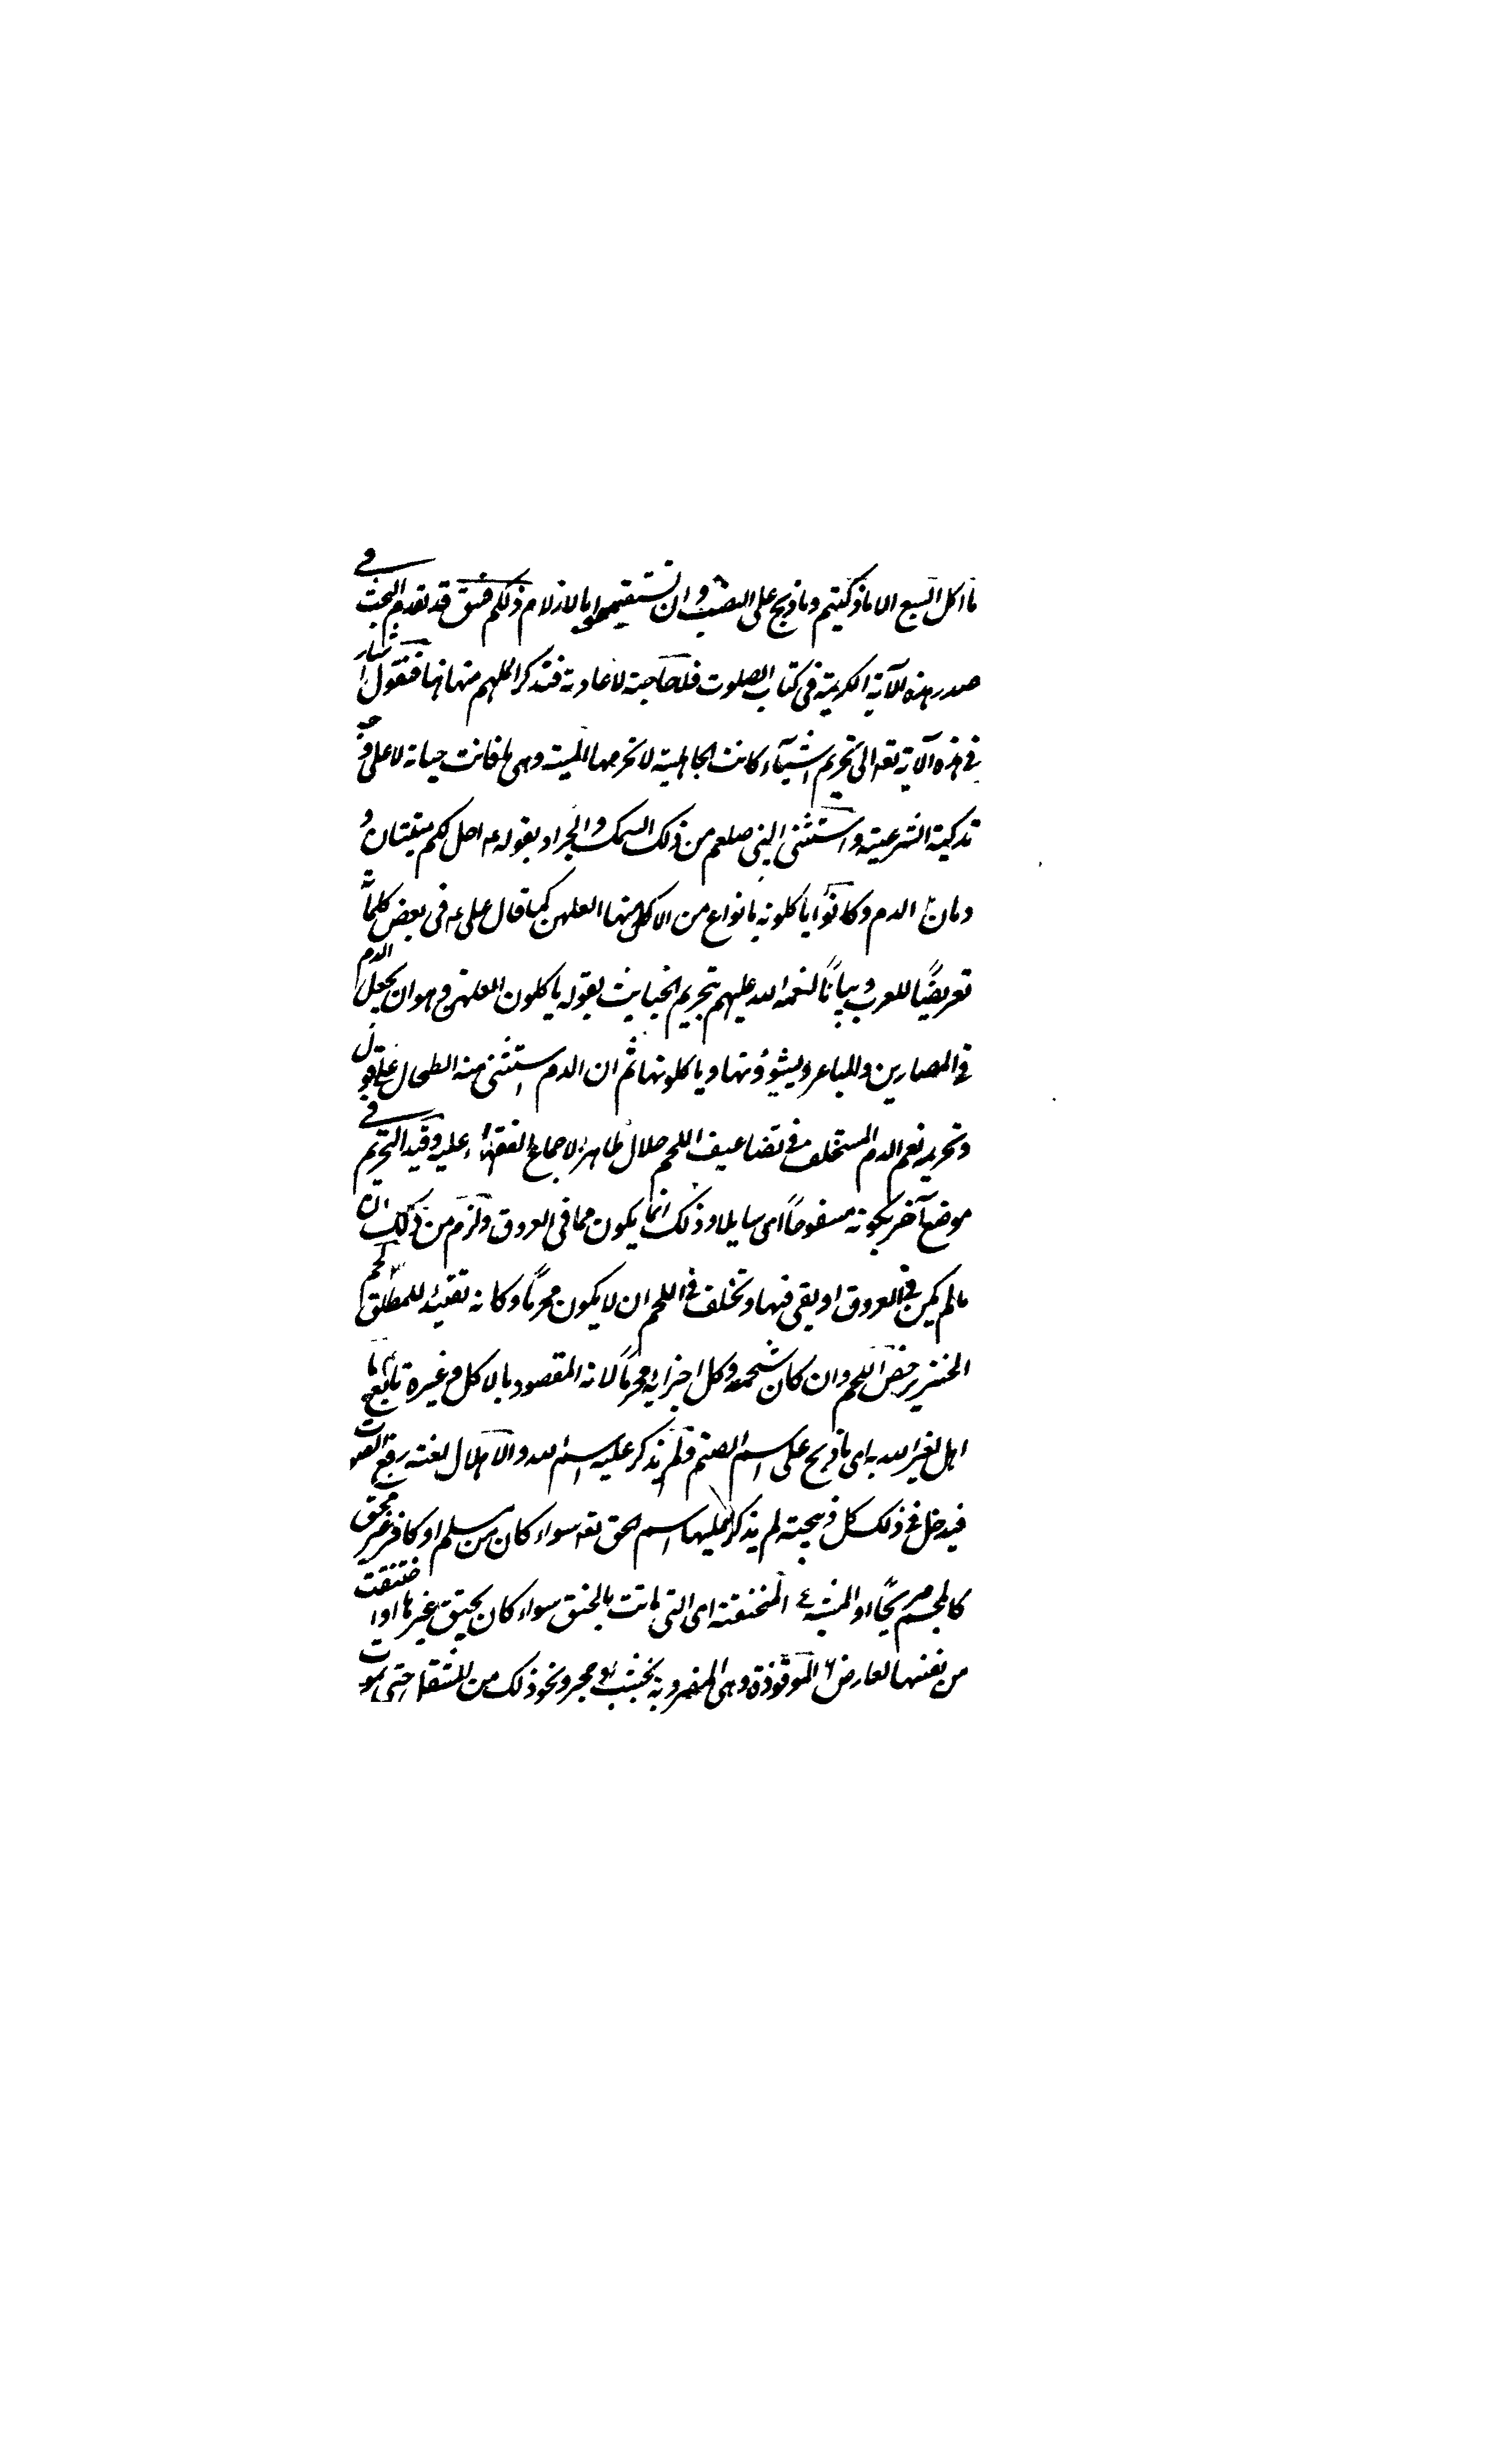 ما اكل السبع الا ما ذكيتم وما ذبح على النصب وان تستقسموا بالازلام ذلكم فسق قد تقدم البحث في
صدر هذه الآية الكريمة في كتاب الصلوت فلا حاجة لاعادته فنذكر المهم منها هنا فنقول اشار
في هذه الآية تعه الى تحريم اشيآء كانت الجاهلية لا تحرمها الميتة وهي ما فاتت حياته لا على وجه
تذكية الشرعية واستثنى النبي صلعم من ذلك السمك والجراد بقوله عم احل لكم ميتتان و
دمان الدم وكانوا ياكلونه بانواع من الاكل منها العلهز كما قال علي عم في بعض كلماته
تعريضًا للعرب وبيانًا لنعمه الله عليهم بتحريم الخبايث بقوله ياكلون العلهز وهو ان يجعل الدم
في المصارين والمباعر ويشوونها وياكلونها ثم ان الدم استثنى منه الطحال على قول
وتحريمه نعم الدم المستخلف في تضاعيف اللحم حلال طاهر لاجماع الفقهاء عليه وقيد التحريم في
موضع آخر بكونه مسفوحًا اى سايلا وذلك انما يكون مما في العروق ولزم من ذلك ان
مالم يكن في العروق او بقى فيها وتخلف في اللحم ان لا يكون محرمًا وكانه تقييد للمطلق لحم
الخنزير خص اللحم وان كان شحمه وكل اجزائه محرمًا لانه المقصود بالاكل وغيره تابع ما
اهل لغير الله به اى ما ذبح على اسم الصنم ولم يذكر عليه اسم الله والاهلال لغة رفع الصوت
فيدخل في ذلك كل ذبيحة لم يذكر عليها اسم الحق تعه سواء كان من مسلم او كافر غير محق
كالمجسم صريحًا او المشبه المنخنقة اى التي ماتت بالخنق سواء كان بخنق غيرها او اختنقت
من نفسها لعارض الموقوذة وهى المضروبة بخشب او حجر ونحو ذلك من المثقل حتى تموت